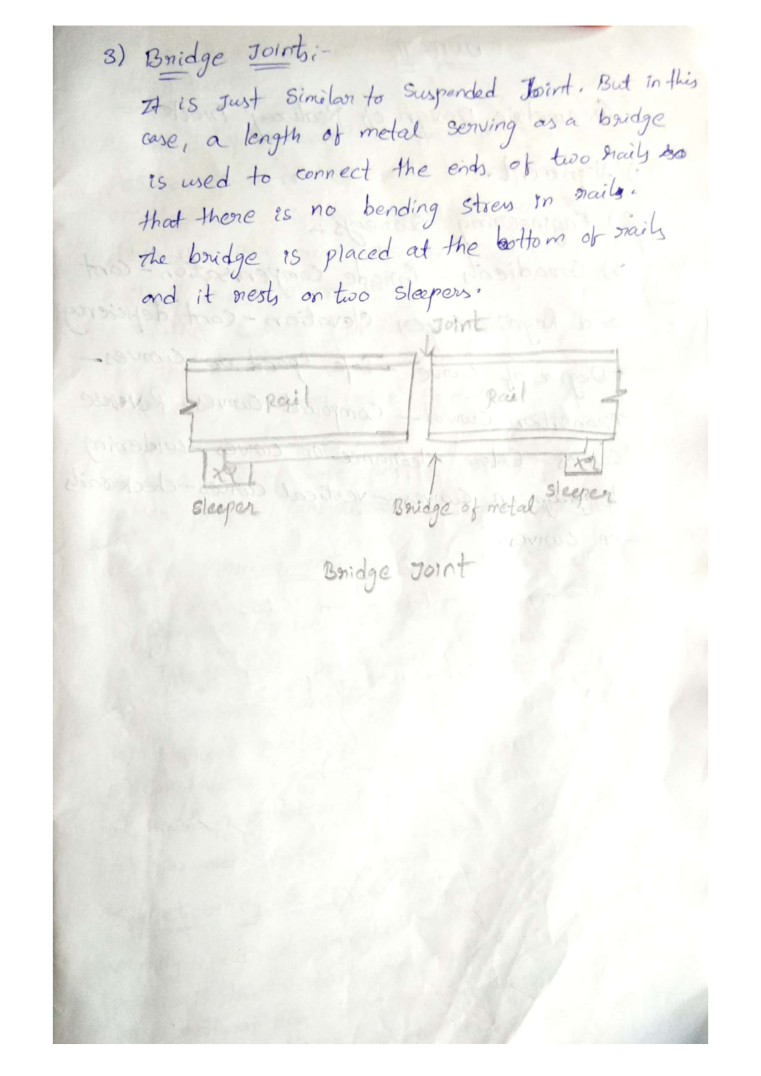 3) Bridge Joints:-
It is Just Similar to Suspended Joint. But in this
case, a length of metal serving as a bridge
is used to connect the ends of two rails so
that there is no bending stress in rails.
The bridge is placed at the bottom of rails
and it rests on two Sleepers.
Joint
Rail
Rail
Sleeper
Bridge of metal
Sleeper
Bridge Joint